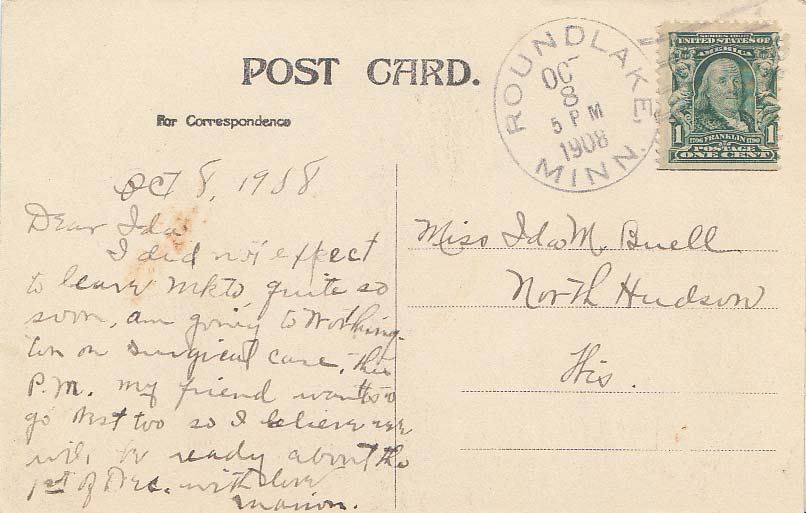 POST CARD.
For Correspondence
ROUNDLAKE,
OCT
8
5 PM
1908
MINN.
SERIES 1902
UNITED STATES OF
AMERICA
1 1
1706 FRANKLIN 1790
POSTAGE
ONE CENT
Oct 8, 1908
Dear Ida
I did not expect
to leave Mkto, quite so
soon, am going to Worthing-
ton on surgical case, this
P.M. my friend wants to
go West too so I believe we
will be ready about the
1st of Dec. with love
Marion.
Miss Ida M. Buell
North Hudson
Wis.